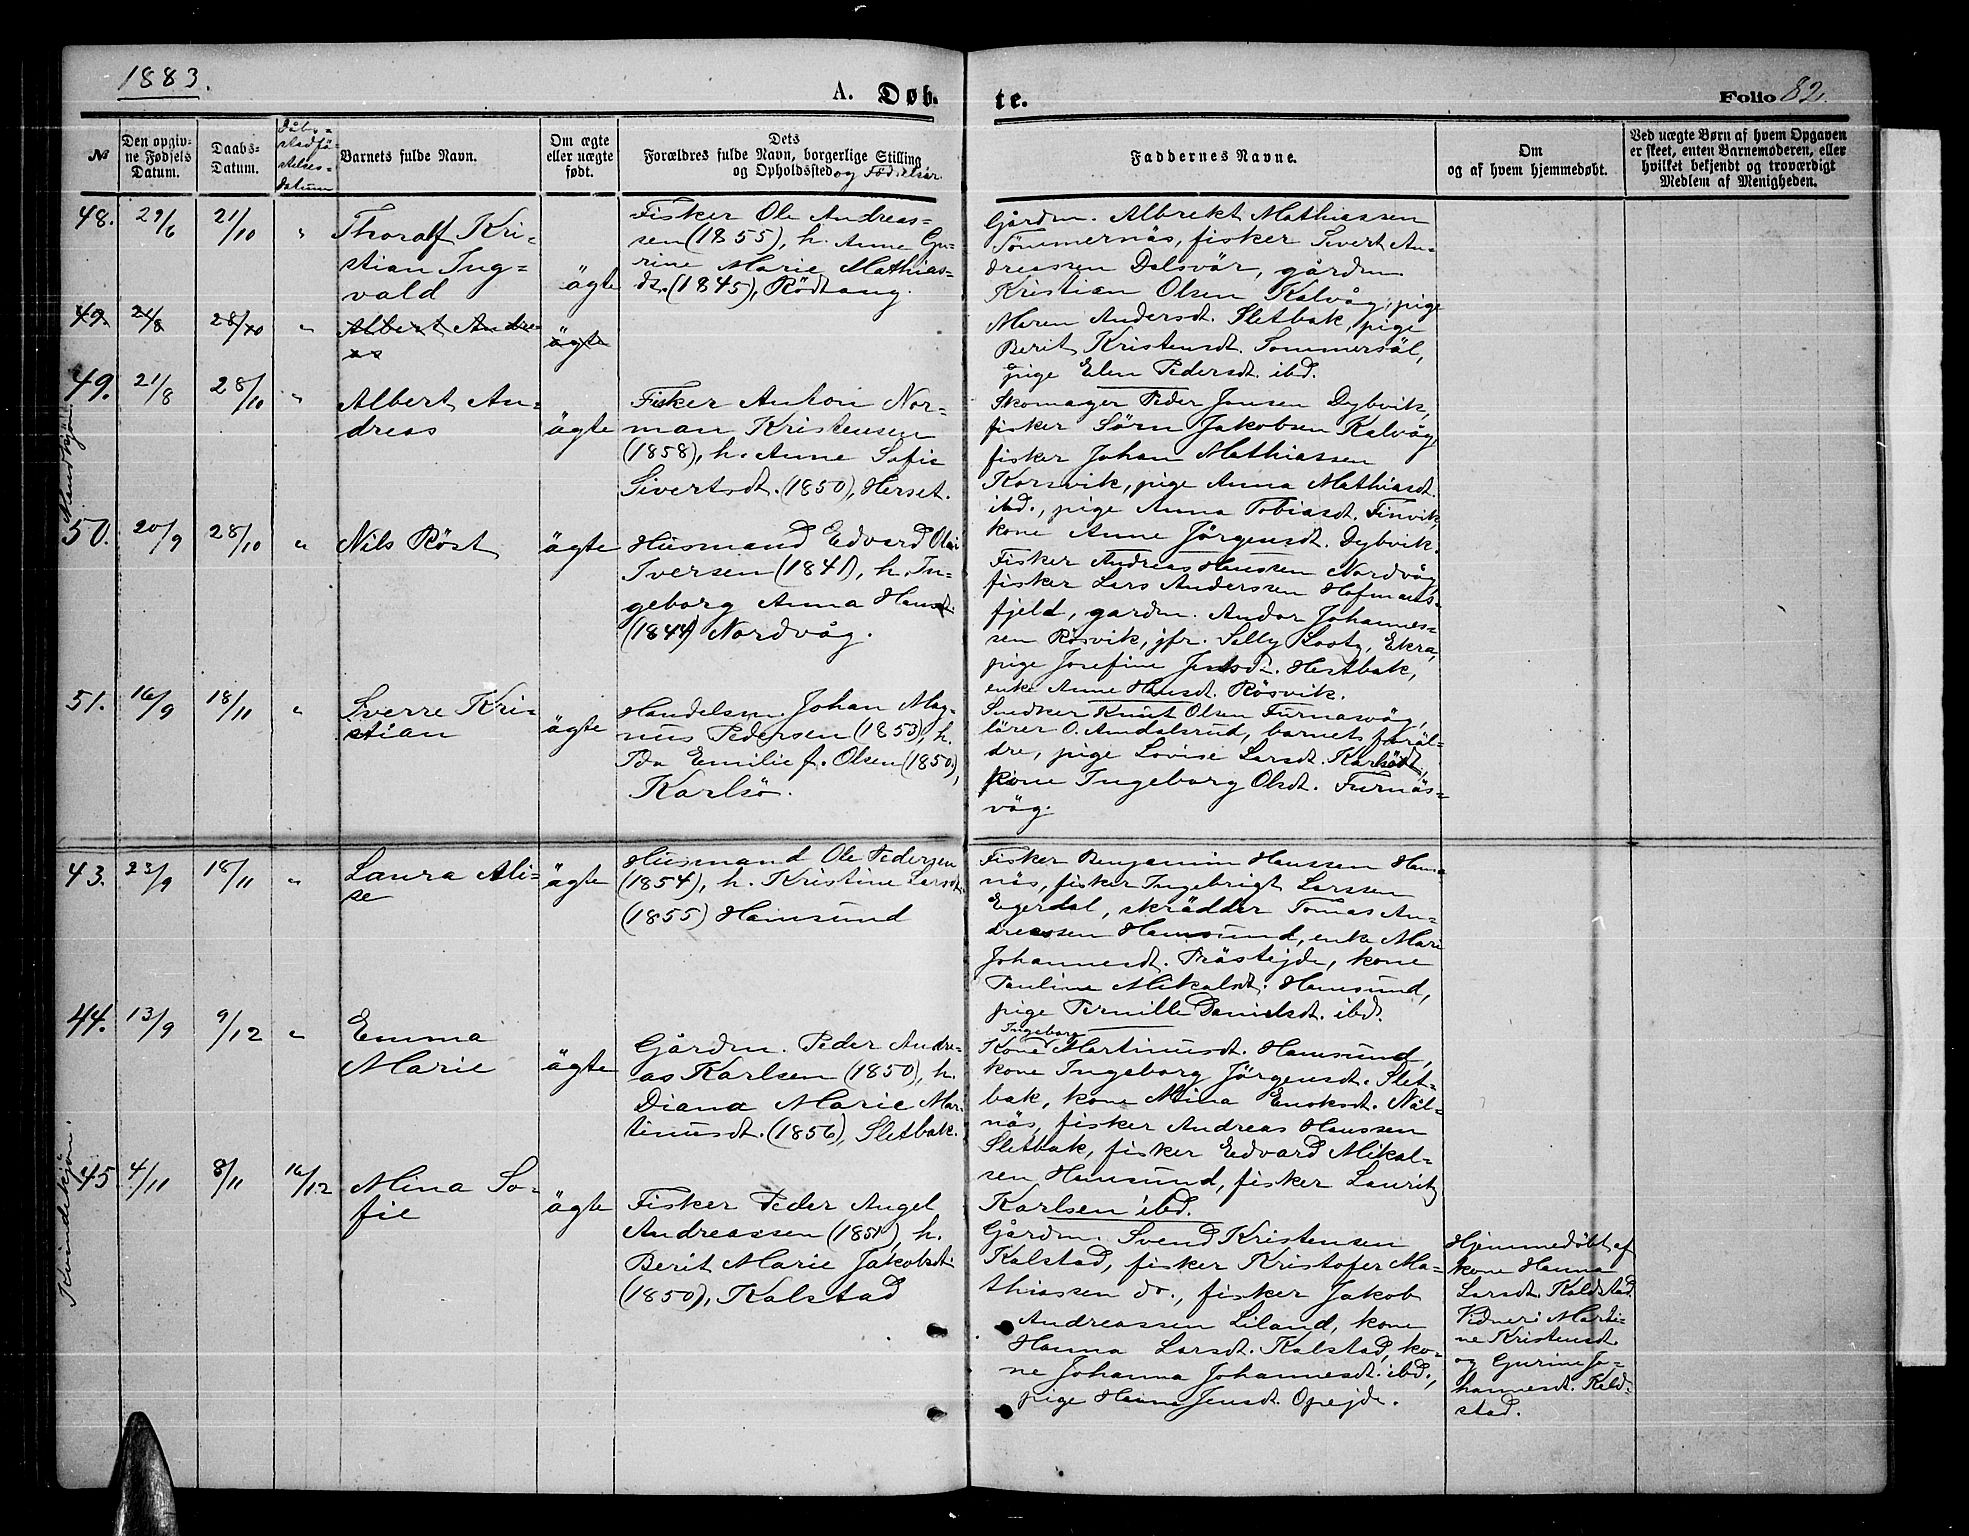 1883.
A. Døb-
te.
Folio 82.
№
Den opgiv-
ne Fødsels
Datum.
Daabs-
Datum.
Dåbs-
stadfä-
stelses-
datum
Barnets fulde Navn.
Om ægte
eller uægte
født.
Dets
Forældres fulde Navn, borgerlige Stilling
og Opholdssted og Fødselsår.
Faddernes Navne.
Om
og af hvem hjemmedøbt.
Ved uægte Børn af hvem Opgaven
er skeet, enten Barnemoderen, eller
hvilket bekjendt og troværdigt
Medlem af Menigheden.
Mandkjön.
48. 29/6 21/10 "
Thoralf Kri-
stian Ing-
vald
ägte
Fisker Ole Andreas-
sen (1855), h. Anne Gu-
rine Marie Mathias-
dt. (1845), Rödtang.
Gårdm. Albrekt Mathiassen
Tömmernäs, fisker Sivert An-
dreassen Dalsvär, gårdm.
Kristian Olsen Kalvåg, pige
Maren Andersdt. Sletbak, pige
Berit Kristensdt. Sommersäl,
pige Elen Pedersdt. ibd.
49. 21/8 28/10 "
Albert Andre-
as
ägte
49. 21/8 28/10 "
Albert An-
dreas
ägte
Fisker Anton Nor-
man Kristensen
(1858), h. Anne Sofie
Sivertsdt. (1850), Herset.
Skomager Peder Jensen Dybvik,
fisker Sörn Jakobsen Kalvåg,
fisker Johan Mathiassen
Korsvik, pige Anna Mathiasdt.
ibd., pige Anna Tobiasdt. Finvik,
kone Anne Jörgensdt. Dybvik.
50. 20/9 28/10 "
Nils Röst
ägte
Husmand Edvard Olai
Iversen (1841), h. In-
geborg Anna Hansdt.
(1844) Nordvåg.
Fisker Andreas Hanssen Nordvåg,
fisker Lars Anderssen Hofmans-
fjeld, gardm. Andor Johannes-
sen Rösvik, jfr. Selly Lootz, Ekra,
pige Josefine Jensdt. Hestbak,
enke Anne Hansdt. Rösvik.
51. 16/9 18/11 "
Sverre Kri-
stian
ägte
Handelsm. Johan Mag-
nus Pedersen (1853), h.
Ida Emilie f. Olsen (1850),
Karlsö.
Snedker Knut Olsen Furnäsvåg,
lärer O. Amdalsrud, barnets foräl-
dre, pige Lovise Larsdt. Karlsö,
kone Ingeborg Olsdt. Furnäs-
våg.
Kvindekjön.
43. 23/9 18/11 "
Laura Ali-
se
ägte
Husmand Ole Pedersen
(1854), h. Kristine Larsdt.
(1855) Hamsund
Fisker Benjamin Hanssen Ham-
näs, fisker Ingebrigt Larssen
Egerdal, skrädder Tomas An-
dreassen Hamsund, enke Mari
Johannesdt. Prästejde, kone
Pauline Mikalsdt. Hamsund,
pige Pernille Danielsdt. ibd.
44. 13/9 9/12 "
Emma
Marie
ägte
Gårdm. Peder Andre-
as Karlsen (1850), h.
Diana Marie Mar-
tinusdt. (1856), Sletbak.
Ingeborg
Kone Martinusdt. Hamsund,
kone Ingeborg Jörgensdt. Slet-
bak, kone Mina Enoksdt. Nål-
näs, fisker Andreas Hanssen
Sletbak, fisker Edvard Mikal-
sen Hamsund, fisker Lauritz
Karlsen ibd.
45 4/11 8/11 16/12
Mina So-
fie
ägte
Fisker Peder Angel
Andreassen (1851), h.
Berit Marie Jakobsdt.
(1850), Kalstad
Gårdm. Svend Kristensen
Kalstad, fisker Kristofer Ma-
thiassen do., fisker Jakob
Andreassen Liland, kone
Hanna Larsdt. Kalstad, ko-
ne Johanna Johannesdt. ibd.,
pige Hanna Jensdt. Opejde.
Hjemmedöbt af
kone Hanna
Larsdt. Kaldstad.
Vidner: Marti-
ne Kristensdt.
og Gurine Jo-
hannesdt. Kald-
stad.